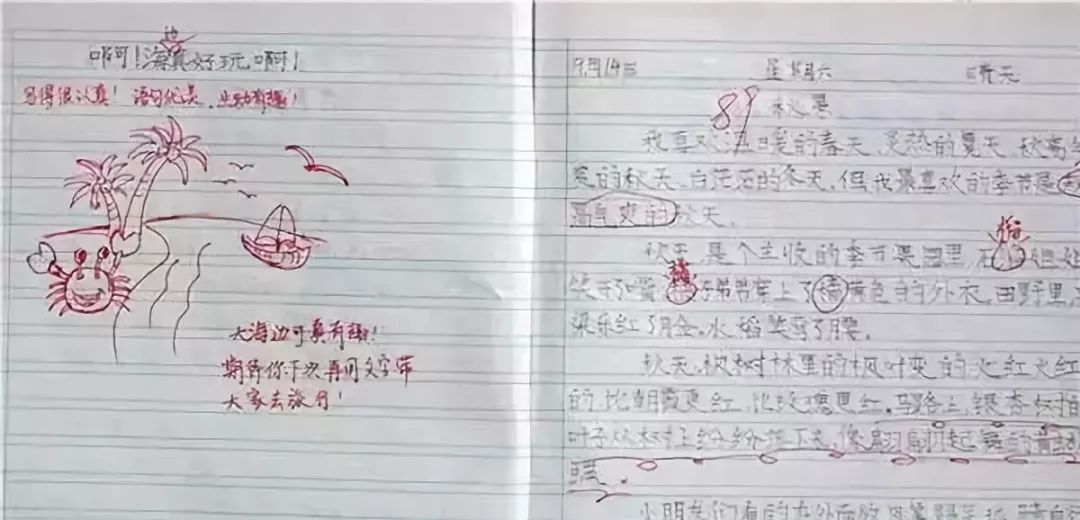 边
啊!海真好玩啊!
写得很认真!语句优美,生动有趣!
大海边可真有趣!
期待你下次再用文字带
大家去旅行!
9月14日 星期六 晴天
89
秋景
我喜欢温暖的春天,炎热的夏天,秋高气
爽的秋天,白茫茫的冬天,但我最喜欢的季节是
高气爽的秋天。
秋天是个丰收的季节果园里,石 姐姐
笑 了嘴 子弟弟穿上了橘黄色的外衣,田野里,
梁乐红了 水稻笑弯了腰。
秋天,枫树林里的枫叶 的火红火红
的,比朝霞更红,比玫瑰更红。马路上,银杏
叶子从树上纷纷落下来,像翩翩起舞的黄
蝶。
小朋友们有的在 外面放风筝